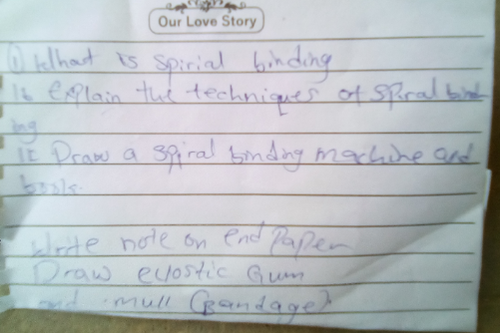 Our Love Story
① What is spirial binding
1b Explain the techniques of spiral bind-
ing
1c Draw a spiral binding machine and
books.
Write note on end Paper
Draw eclostic Gum
and mull (Bandage)